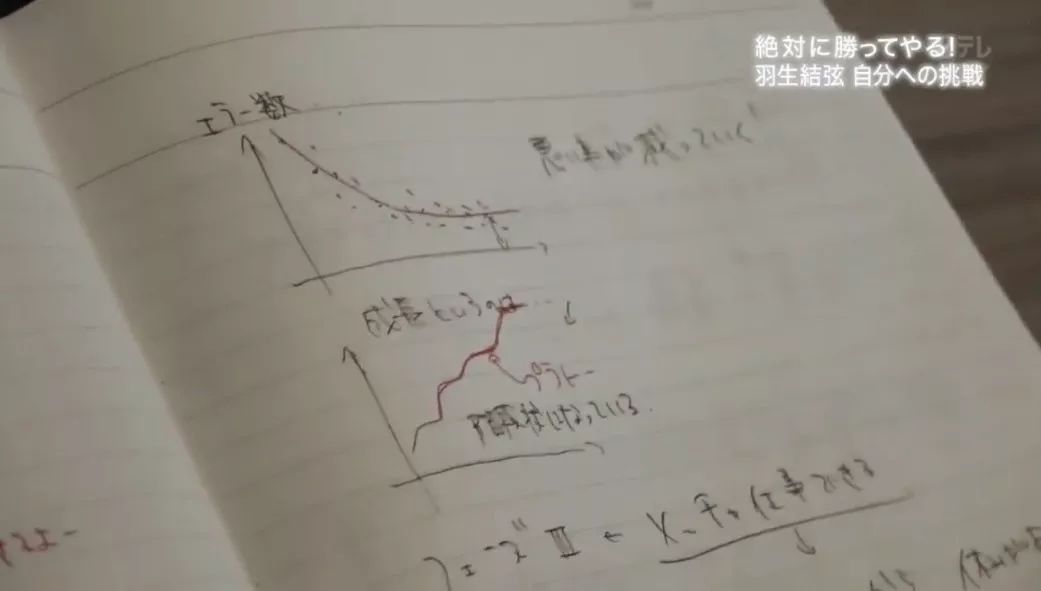 絶対に勝ってやる!テレ
羽生結弦 自分への挑戦
エラー数
悪い事が減っていく
成長というのは…
プラトー
階段状になっている.
フェーズⅢ ←
仕事できる